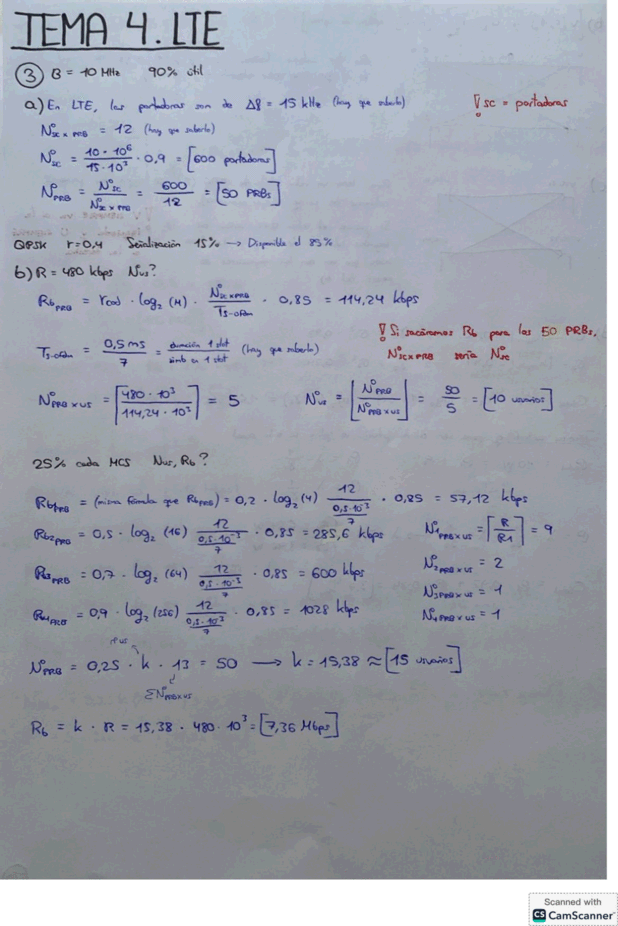 TEMA 4. LTE
③ B = 10 MHz 90% útil
a) En LTE, las portadoras son de Δf = 15 kHz (hay que saberlo)
! sc = portadoras
Nº sc x PRB = 12 (hay que saberlo)
Nº sc = 10 · 10⁶ / 15 · 10³ · 0,9 = [600 portadoras]
Nº PRB = Nº sc / Nº sc x PRB = 600 / 12 = [50 PRBs]
QPSK r=0,4 Señalización 15% → Disponible el 85%
b) R = 480 kbps Nus?
Rb PRB = rcod · log₂ (4) · Nº sc x PRB / Ts-ofdm · 0,85 = 114,24 kbps
! Si sacáramos Rb para los 50 PRBs,
Nº sc x PRB sería Nº sc
Ts-ofdm = 0,5 ms / 7 = duración 1 slot / simb en 1 slot (hay que saberlo)
Nº PRB x us = ⌈480 · 10³ / 114,24 · 10³⌉ = 5 Nº us = ⌊Nº PRB / Nº PRB x us⌋ = 50 / 5 = [10 usuarios]
25% cada MCS Nus, Rb?
Rb1 PRB = (misma fórmula que Rb PRB) = 0,2 · log₂ (4) 12 / (0,5·10⁻³ / 7) · 0,85 = 57,12 kbps
Rb2 PRB = 0,5 · log₂ (16) 12 / (0,5·10⁻³ / 7) · 0,85 = 285,6 kbps
Nº1 PRB x us = ⌈R / R1⌉ = 9
Rb3 PRB = 0,7 · log₂ (64) 12 / (0,5·10⁻³ / 7) · 0,85 = 600 kbps
Nº2 PRB x us = 2
Nº3 PRB x us = 1
Rb4 PRB = 0,9 · log₂ (256) 12 / (0,5·10⁻³ / 7) · 0,85 = 1028 kbps
Nº4 PRB x us = 1
nº us
Nº PRB = 0,25 · k · 13 = 50 → k = 15,38 ≈ [15 usuarios]
ΣNº PRB x us
Rb = k · R = 15,38 · 480 · 10³ = [7,36 Mbps]
Scanned with
CS CamScanner